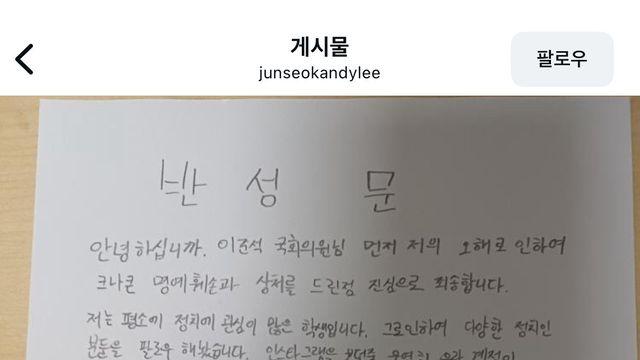 게시물
junseokandylee
팔로우
반성문
안녕하십니까. 이준석 국회의원님 먼저 저의 오해로 인하여
크나큰 명예훼손과 상처를 드린점 진심으로 죄송합니다.
저는 평소에 정치에 관심이 많은 학생입니다. 그로인하여 다양한 정치인
분들을 팔로우 해놨습니다. 인스타그램은